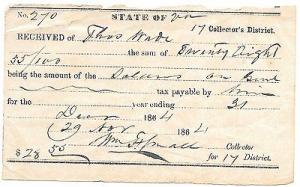 No. 270 STATE OF Va
17 Collector's District.
RECEIVED of Thos Wade
the sum of Twenty Eight
55/100 Dollars on
being the amount of the
tax payable by him
for the year ending 31
Decr 1864
29 Nov 1864
Wm Collector
$28 55 for 17 District.